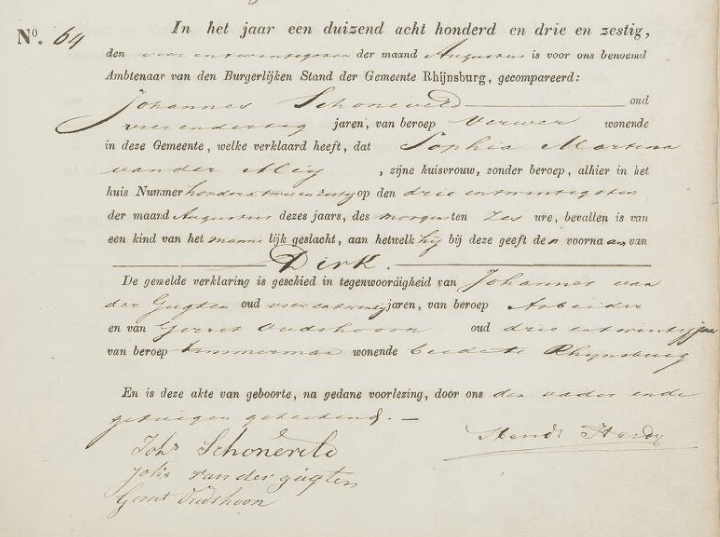 No. 64
In het jaar een duizend acht honderd en drie en zestig,
den vier entwintigsten der maand Augustus is voor ons benoemd
Ambtenaar van den Burgerlijken Stand der Gemeente Rhijnsburg, gecompareerd:
Johannes Schoneveld oud
vier endertig jaren, van beroep Verwer wonende
in deze Gemeente, welke verklaard heeft, dat Sophia Martina
van der Meij, zijne huisvrouw, zonder beroep, alhier in het
huis Nummer op den drie entwintigsten
der maand Augustus dezes jaars, des morgens ten Zes ure, bevallen is van
een kind van het mannelijk geslacht, aan hetwelk hij bij deze geeft den voornaam van
Dirk.
De gemelde verklaring is geschied in tegenwoordigheid van Johannes van
der Gugten oud vier entwintig jaren, van beroep Arbeider
en van Gerrit Oudshoorn oud drie entwintig jaar
van beroep timmerman wonende beide te Rhijnsburg
En is deze akte van geboorte, na gedane voorlezing, door ons den vader ende
getuigen geteekend. —
Joh.s Schoneveld
Joh.s van der gugten
Gerrit Oudshoorn